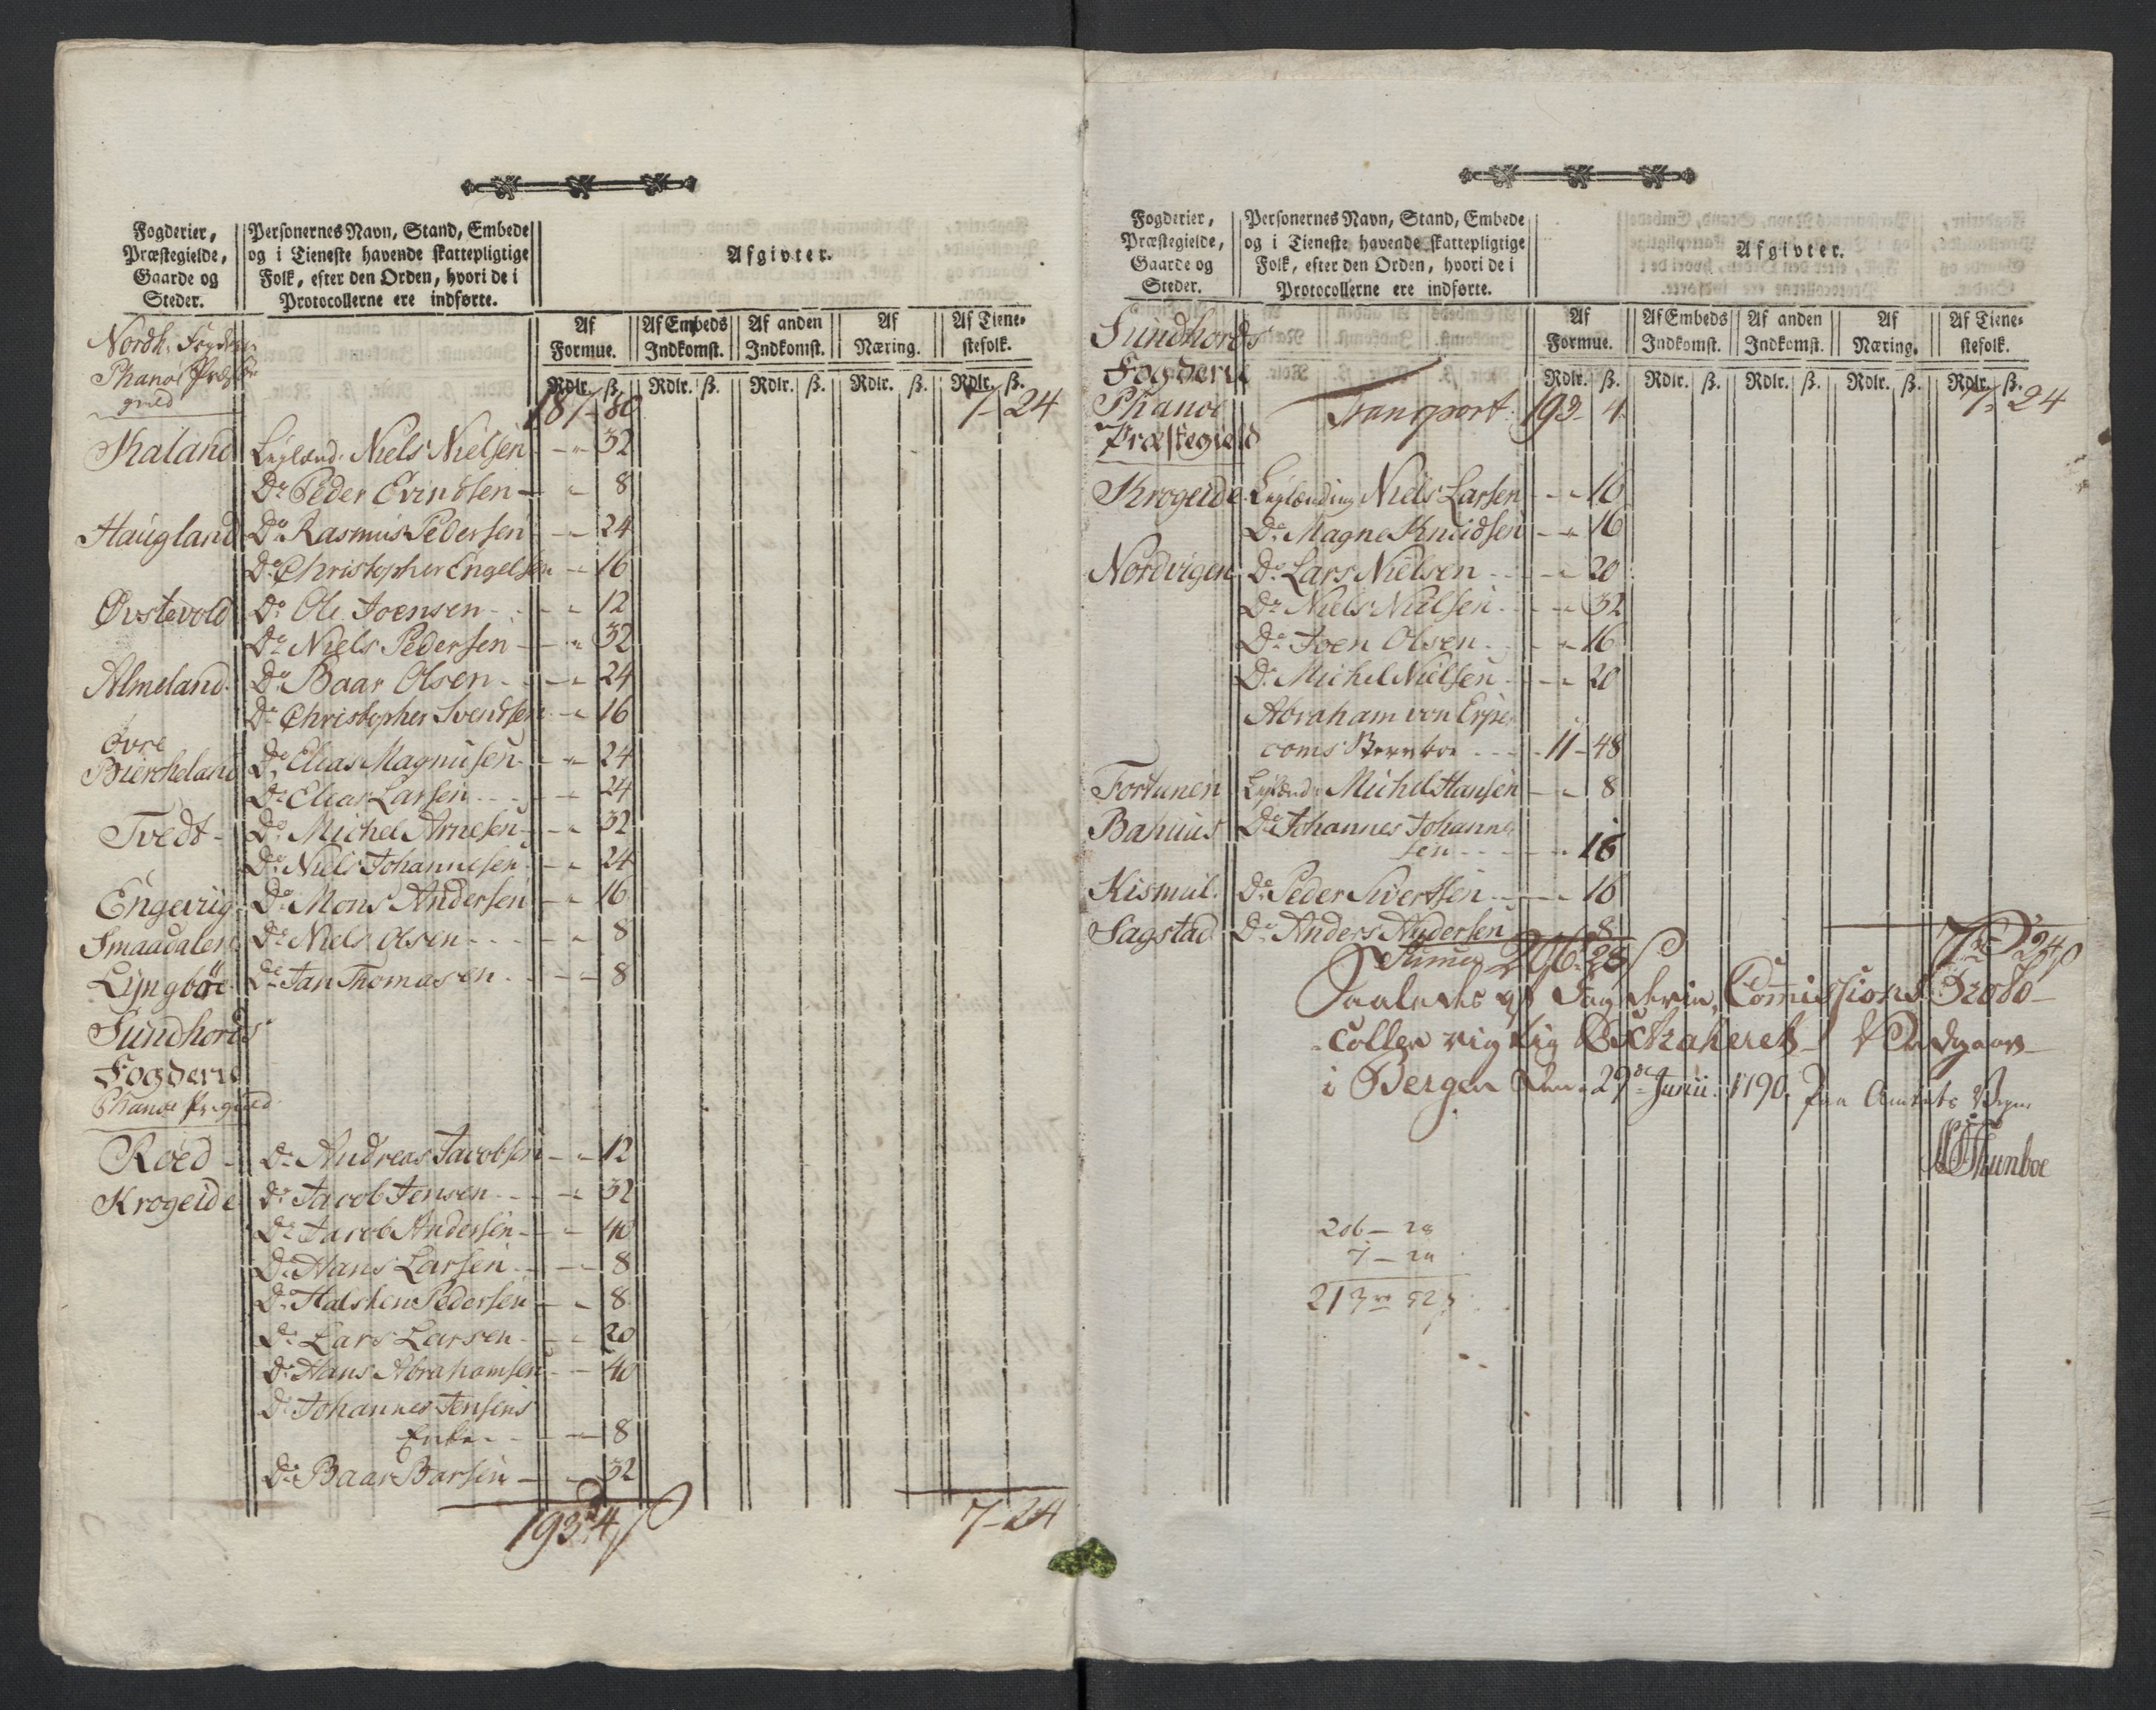 Fogderier,
Præstegielde,
Gaarde og
Steder.
Personernes Navn, Stand, Embede
og i Tieneste havende skattepligtige
Folk, efter den Orden, hvori de i
Protocollerne ere indførte.
Afgivter.
Af Formue. Af Embeds Indkomst. Af anden Indkomst. Af Næring. Af Tienestefolk.
Rdlr. ß. Rdlr. ß. Rdlr. ß. Rdlr. ß. Rdlr. ß.
Nordh. Fogderie
Phanoe Præste
gield
187 - 80 7 - 24
Skaland Leylænd. Niels Nielsen - " - 32
Do. Peder Evindsen - " - 8
Haugland Do. Rasmus Pedersen - " - 24
Do. Christopher Engelsen - 16
Øvstevold Do. Ole Joensen - " - 12
Do. Niels Pedersen - " - 32
Almeland Do. Baar Olsen - " - 24
Do. Christopher Svendsen - 16
Øvre
Biercheland Do. Elias Magnusen - " - 24
Do. Elias Larsen - 24
Tvedt - Do. Michel Arnesen - " - 32
Do. Niels Johannesen - " - 24
Engeviig Do. Mons Andersen - " - 16
Smaadalen Do. Niels Olsen - " - 8
Lyngbøe Do. Jan Thomasen - 8
Sundhords
Fogderie
Phanoe Pr. gield
Røed - Do. Andreas Jacobsen - " - 12
Krogeide Do. Jacob Jensen - 32
Do. Jacob Andersen - " - 40
Do. Hans Larsen - 8
Do. Halsten Pedersen - " - 8
Do. Lars Larsen - " - 20
Do. Hans Abrahamsen - 40
Do. Johannes Jensens
Enke - 8
Do. Baar Barsen - 32
193 - 4 ß 7 - 24
Fogderier,
Præstegielde,
Gaarde og
Steder.
Personernes Navn, Stand, Embede
og i Tieneste havende skattepligtige
Folk, efter den Orden, hvori de i
Protocollerne ere indførte.
Afgivter.
Af Formue. Af Embeds Indkomst. Af anden Indkomst. Af Næring. Af Tienestefolk.
Rdlr. ß. Rdlr. ß. Rdlr. ß. Rdlr. ß. Rdlr. ß.
Sundhords
Fogderie
Phanoe Transport 193 - 4 7 - 24
Præstegield
Krogeide Leylænding Niels Larsen - " - 16
Do. Magne Knudsen - " - 16
Nordvigen Do. Lars Nielsen - " - 20
Do. Niels Nielsen - " - 32
Do. Joen Olsen - " - 16
Do. Michel Nielsen - " - 20
Abraham von Erpe
coms - 11 - 48
Fortunen Leylænd. Michel Hansen - " - 8
Bahuus Do. Johannes Johanne
sen - " - 16
Kismul. Do. Peder Sivertsen - 16
Sagstad Do. Anders Andersen - 8
Summa 206 - 28 ß 7 rd 24 ß
Saaledes af Fogderiets Commissions Proto-
collen rigtig Extraheret
i Bergen den 29de Junii 1790. Paa Amtets Vegne
Thunboe
206 - 28
7 - 24
213 rd 52 ß